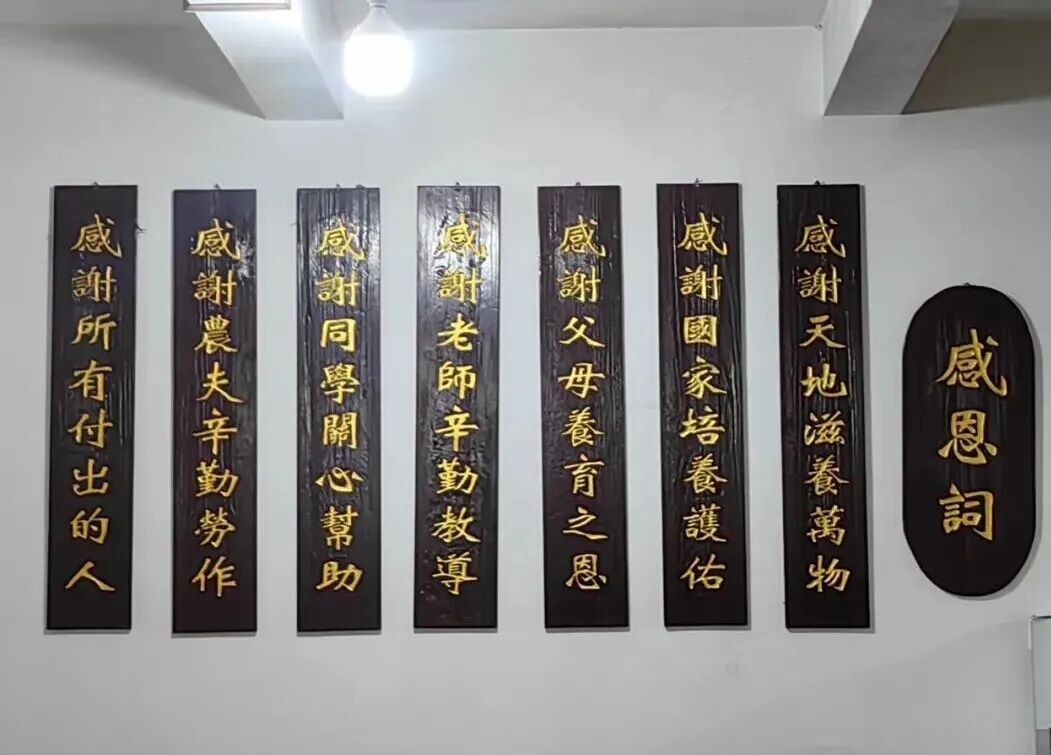 感恩詞
感謝天地滋養萬物
感謝國家培養護佑
感謝父母養育之恩
感謝老師辛勤教導
感謝同學關心幫助
感謝農夫辛勤勞作
感謝所有付出的人